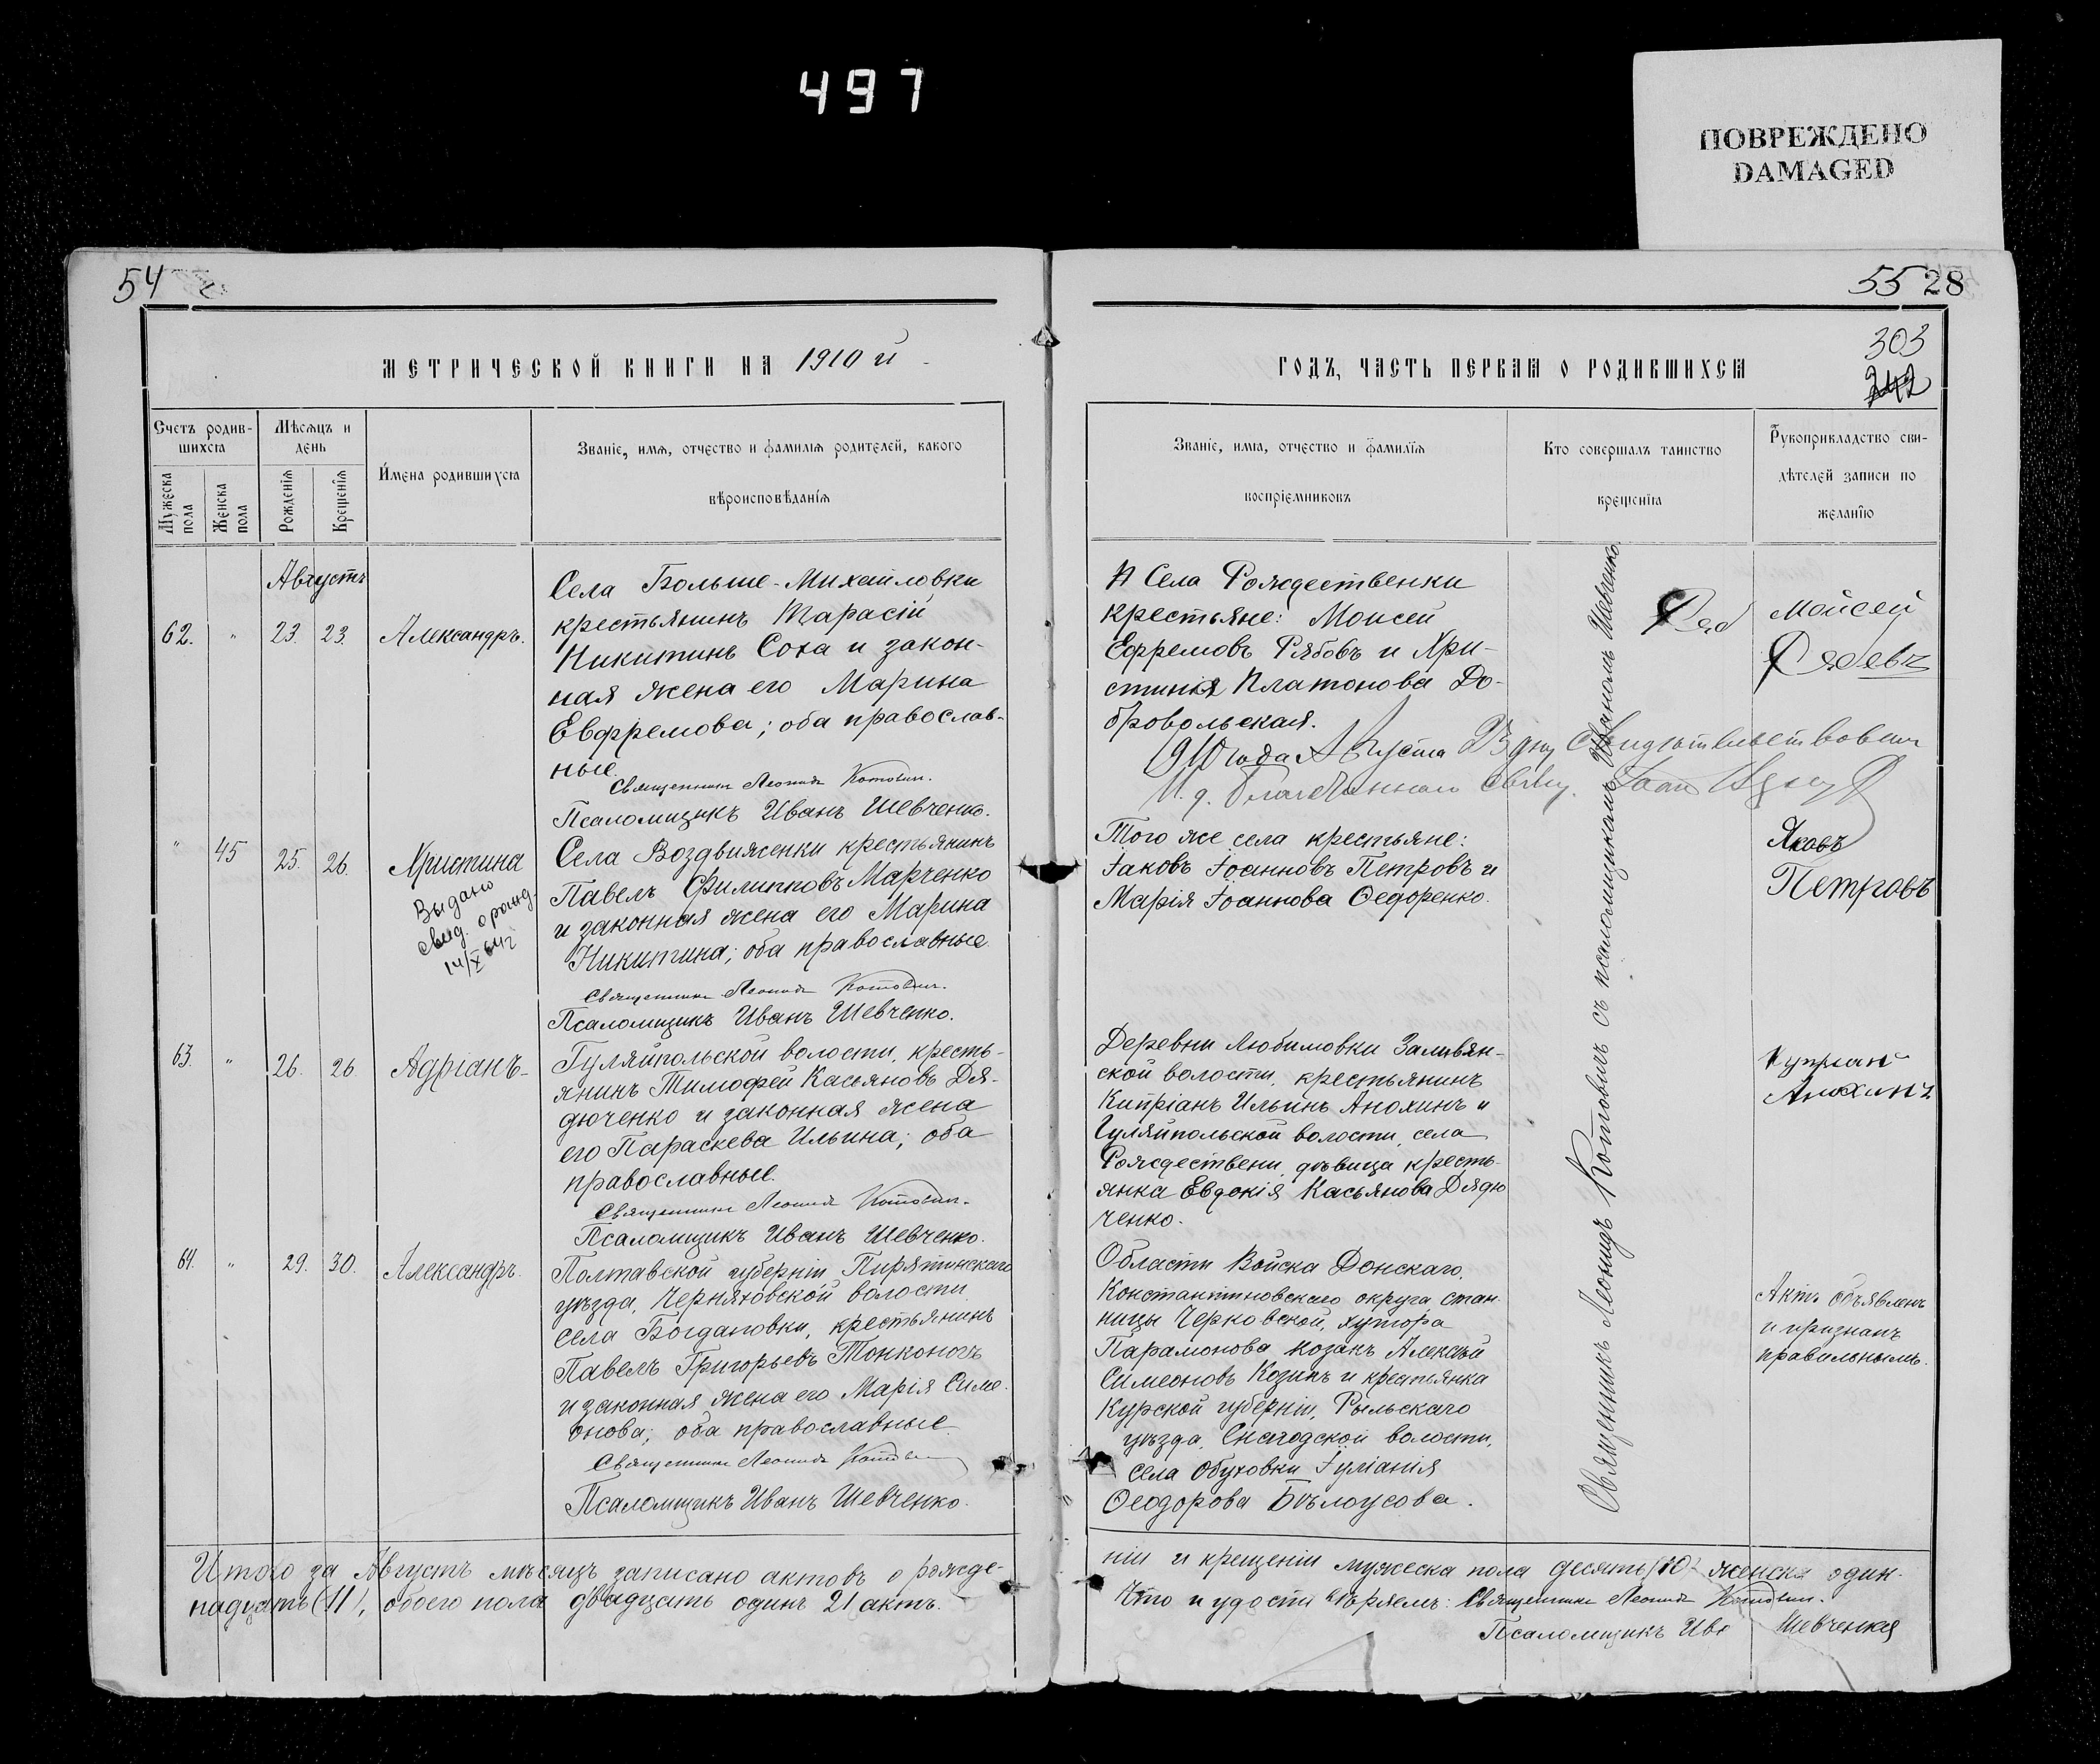 497
ПОВРЕЖДЕНО
DAMAGED
54
МЕТРИЧЕСКОЙ КНИГИ НА 1910 й
Счетъ родив-
шихся
Мужеска пола
Женска пола
Мѣсяцъ и
день
Рожденія
Крещенія
Имена родившихся
Званіе, имя, отчество и фамилія родителей, какого
вѣроисповѣданія
Августъ
62. " 23. 23. Александръ.
Села Больше-Михайловки
крестьянинъ Тарасій
Никитинъ Соха и закон-
ная жена его Марина
Евфремова; оба православ-
ные.
Священникъ Леонидъ Котович.
Псаломщикъ Иванъ Шевченко.
" 45 25. 26. Христина
Выдано
свид. о рожд.
14/X
Села Воздвиженки крестьянинъ
Павелъ Филипповъ Марченко
и законная жена его Марина
Никитина; оба православные.
Священникъ Леонидъ Котович.
Псаломщикъ Иванъ Шевченко.
63. " 26. 26 Адріанъ-
Гуляйпольской волости, кресть-
янинъ Тимофей Касьяновъ Дя-
дюченко и законная жена
его Параскева Ильина; оба
православные.
Священникъ Леонидъ Котович.
Псаломщикъ Иванъ Шевченко.
64. " 29. 30. Александръ.
Полтавской губерніи Пирятинскаго
уѣзда, Черняховской волости
села Богдановки, крестьянинъ
Павелъ Григорьевъ Тонконогъ
и законная жена его Марія Симе-
онова; оба православные.
Священникъ Леонидъ Котович
Псаломщикъ Иванъ Шевченко.
Итого за Августъ мѣсяцъ записано актовъ о рожде-
надцать (11), обоего пола двадцать одинъ 21 актъ.
55 28
303
242
ГОДЪ, ЧАСТЬ ПЕРВАЯ О РОДИВШИХСЯ
Званіе, имя, отчество и фамилія
воспріемниковъ
Кто совершалъ таинство
крещенія
Рукоприкладство сви-
дѣтелей записи по
желанію
Села Рождественки
крестьяне: Моисей
Ефремовъ Рябовъ и Хри-
стина Платонова До-
бровольская.
Мойсей
Рябовъ
1910 года Августа 23 дня Свидѣтельствовалъ
И. д. Благочиннаго Свящ.
Того же села крестьяне:
Іаковъ Іоанновъ Петровъ и
Марія Іоаннова Ѳедоренко.
Яковъ
Петровъ
Деревни Любимовки Заливян-
ской волости, крестьянинъ
Кипріанъ Ильинъ Анохинъ и
Гуляйпольской волости, села
Рождествени, дѣвица кресть-
янка Евдокія Касьянова Дядю
ченко.
Куприан
Анохинъ
Области Войска Донскаго,
Константиновскаго округа, стан-
ницы Черковской, хутора
Парамонова козакъ Алексѣй
Симеоновъ Козинъ и крестьянка
Курской губерніи, Рыльскаго
уѣзда, Снагодской волости,
села Обуховки Іуліанія
Ѳеодорова Бѣлоусова.
Актъ объявленъ
и признанъ
правильнымъ.
Священникъ Леонидъ Котовичъ съ псаломщикомъ Иваномъ Шевченко.
ніи и крещеніи мужеска пола десять (10) женска один-
Что и удостовѣряемъ: Священникъ Леонидъ Котович.
Псаломщикъ Ив Шевченко